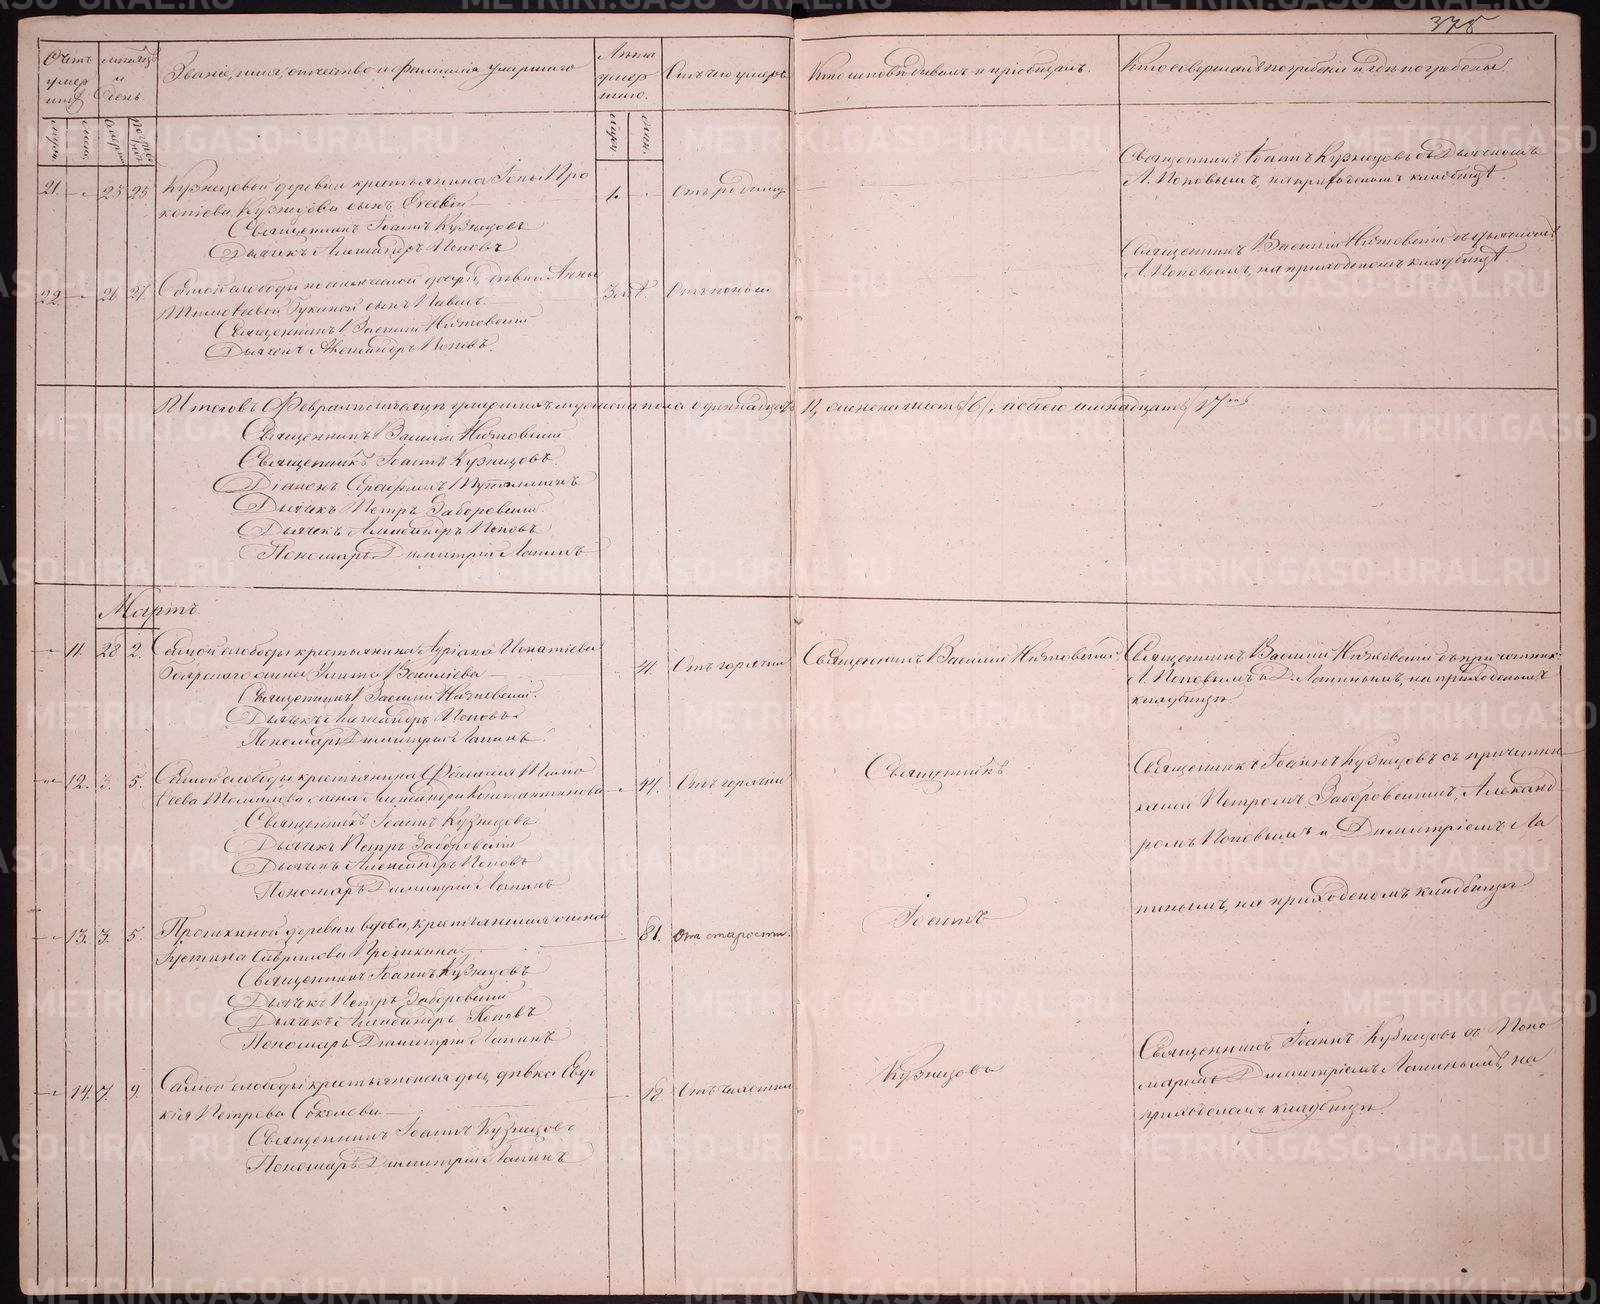 378
Счетъ умер шихъ
Мѣсяцъ и день.
Званіе, имя, отчество и фамилія умершаго
Лѣта умер шаго.
Отъ чего умеръ
Кто исповѣдывалъ и пріобщалъ.
Кто совершалъ погребеніе и гдѣ погребены.
муж. жен.
муж. жен.
21. 23 25 Кузнецовой деревни крестьянина Іоны Про
копіева Кузнецова сынъ Евсевій
1.
Отъ родимц
Священникъ Іоаннъ Кузнецовъ съ Дьячкомъ
А. Поповымъ, на приходскомъ кладбищѣ.
Священникъ Іоаннъ Кузнецовъ
Дьячекъ Александръ Поповъ
22. 26 27. Самой слободы дочери, дѣвки Анны
сынъ Павелъ
Отъ поноса
Священникъ Василій съ дьячкомъ
А. Поповымъ, на приходскомъ кладбищѣ
Священникъ Василій
Дьячекъ Александръ Поповъ.
Итого въ Февралѣ мѣсяцѣ умершихъ мужеска пола одинадцать 11, а женска шесть /6/, а обоего семнадцать /17/
Священникъ Василій
Священникъ Іоаннъ Кузнецовъ
Діаконъ Серафимъ
Дьячекъ Петръ Заборовскій
Дьячекъ Александръ Поповъ
Пономарь Димитрій Лапинъ
Мартъ.
11. 28 2. Самой слободы крестьянина Адріана Игнатіева
жена Улита Василіева
41.
Отъ горячки
Священникъ Василій
Священникъ Василій съ причетник.
А. Поповымъ и Д. Лапинымъ, на приходскомъ
кладбищѣ.
Священникъ Василій
Дьячекъ Александръ Поповъ
Пономарь Димитрій Лапинъ.
12. 3. 5. Самой слободы крестьянина
Томилова жена Александра Константинова
44.
Отъ горячки
Священникъ
Священникъ Іоаннъ Кузнецовъ съ причетни
ками Петромъ Заборовскимъ, Александ
ромъ Поповымъ и Димитріемъ Ла
пинымъ, на приходскомъ кладбищѣ
Священникъ Іоаннъ Кузнецовъ
Дьячекъ Петръ Заборовскій
Дьячекъ Александръ Поповъ
Пономарь Димитрій Лапинъ
13. 3. 5. деревни вдова, крестьянская жена
Гаврилова
81.
Отъ старости.
Іоаннъ
Священникъ Іоаннъ Кузнецовъ
Дьячекъ Петръ Заборовскій
Дьячекъ Александръ Поповъ
Пономарь Димитрій Лапинъ
14. 7. 9. Самой слободы крестьянская дочь, дѣвка Евдо
кія Петрова Соколова
18
Отъ чахотки
Кузнецовъ
Священникъ Іоаннъ Кузнецовъ съ Поно
маремъ Димитріемъ Лапинымъ, на
приходскомъ кладбищѣ.
Священникъ Іоаннъ Кузнецовъ
Пономарь Димитрій Лапинъ
METRIKI.GASO-URAL.RU